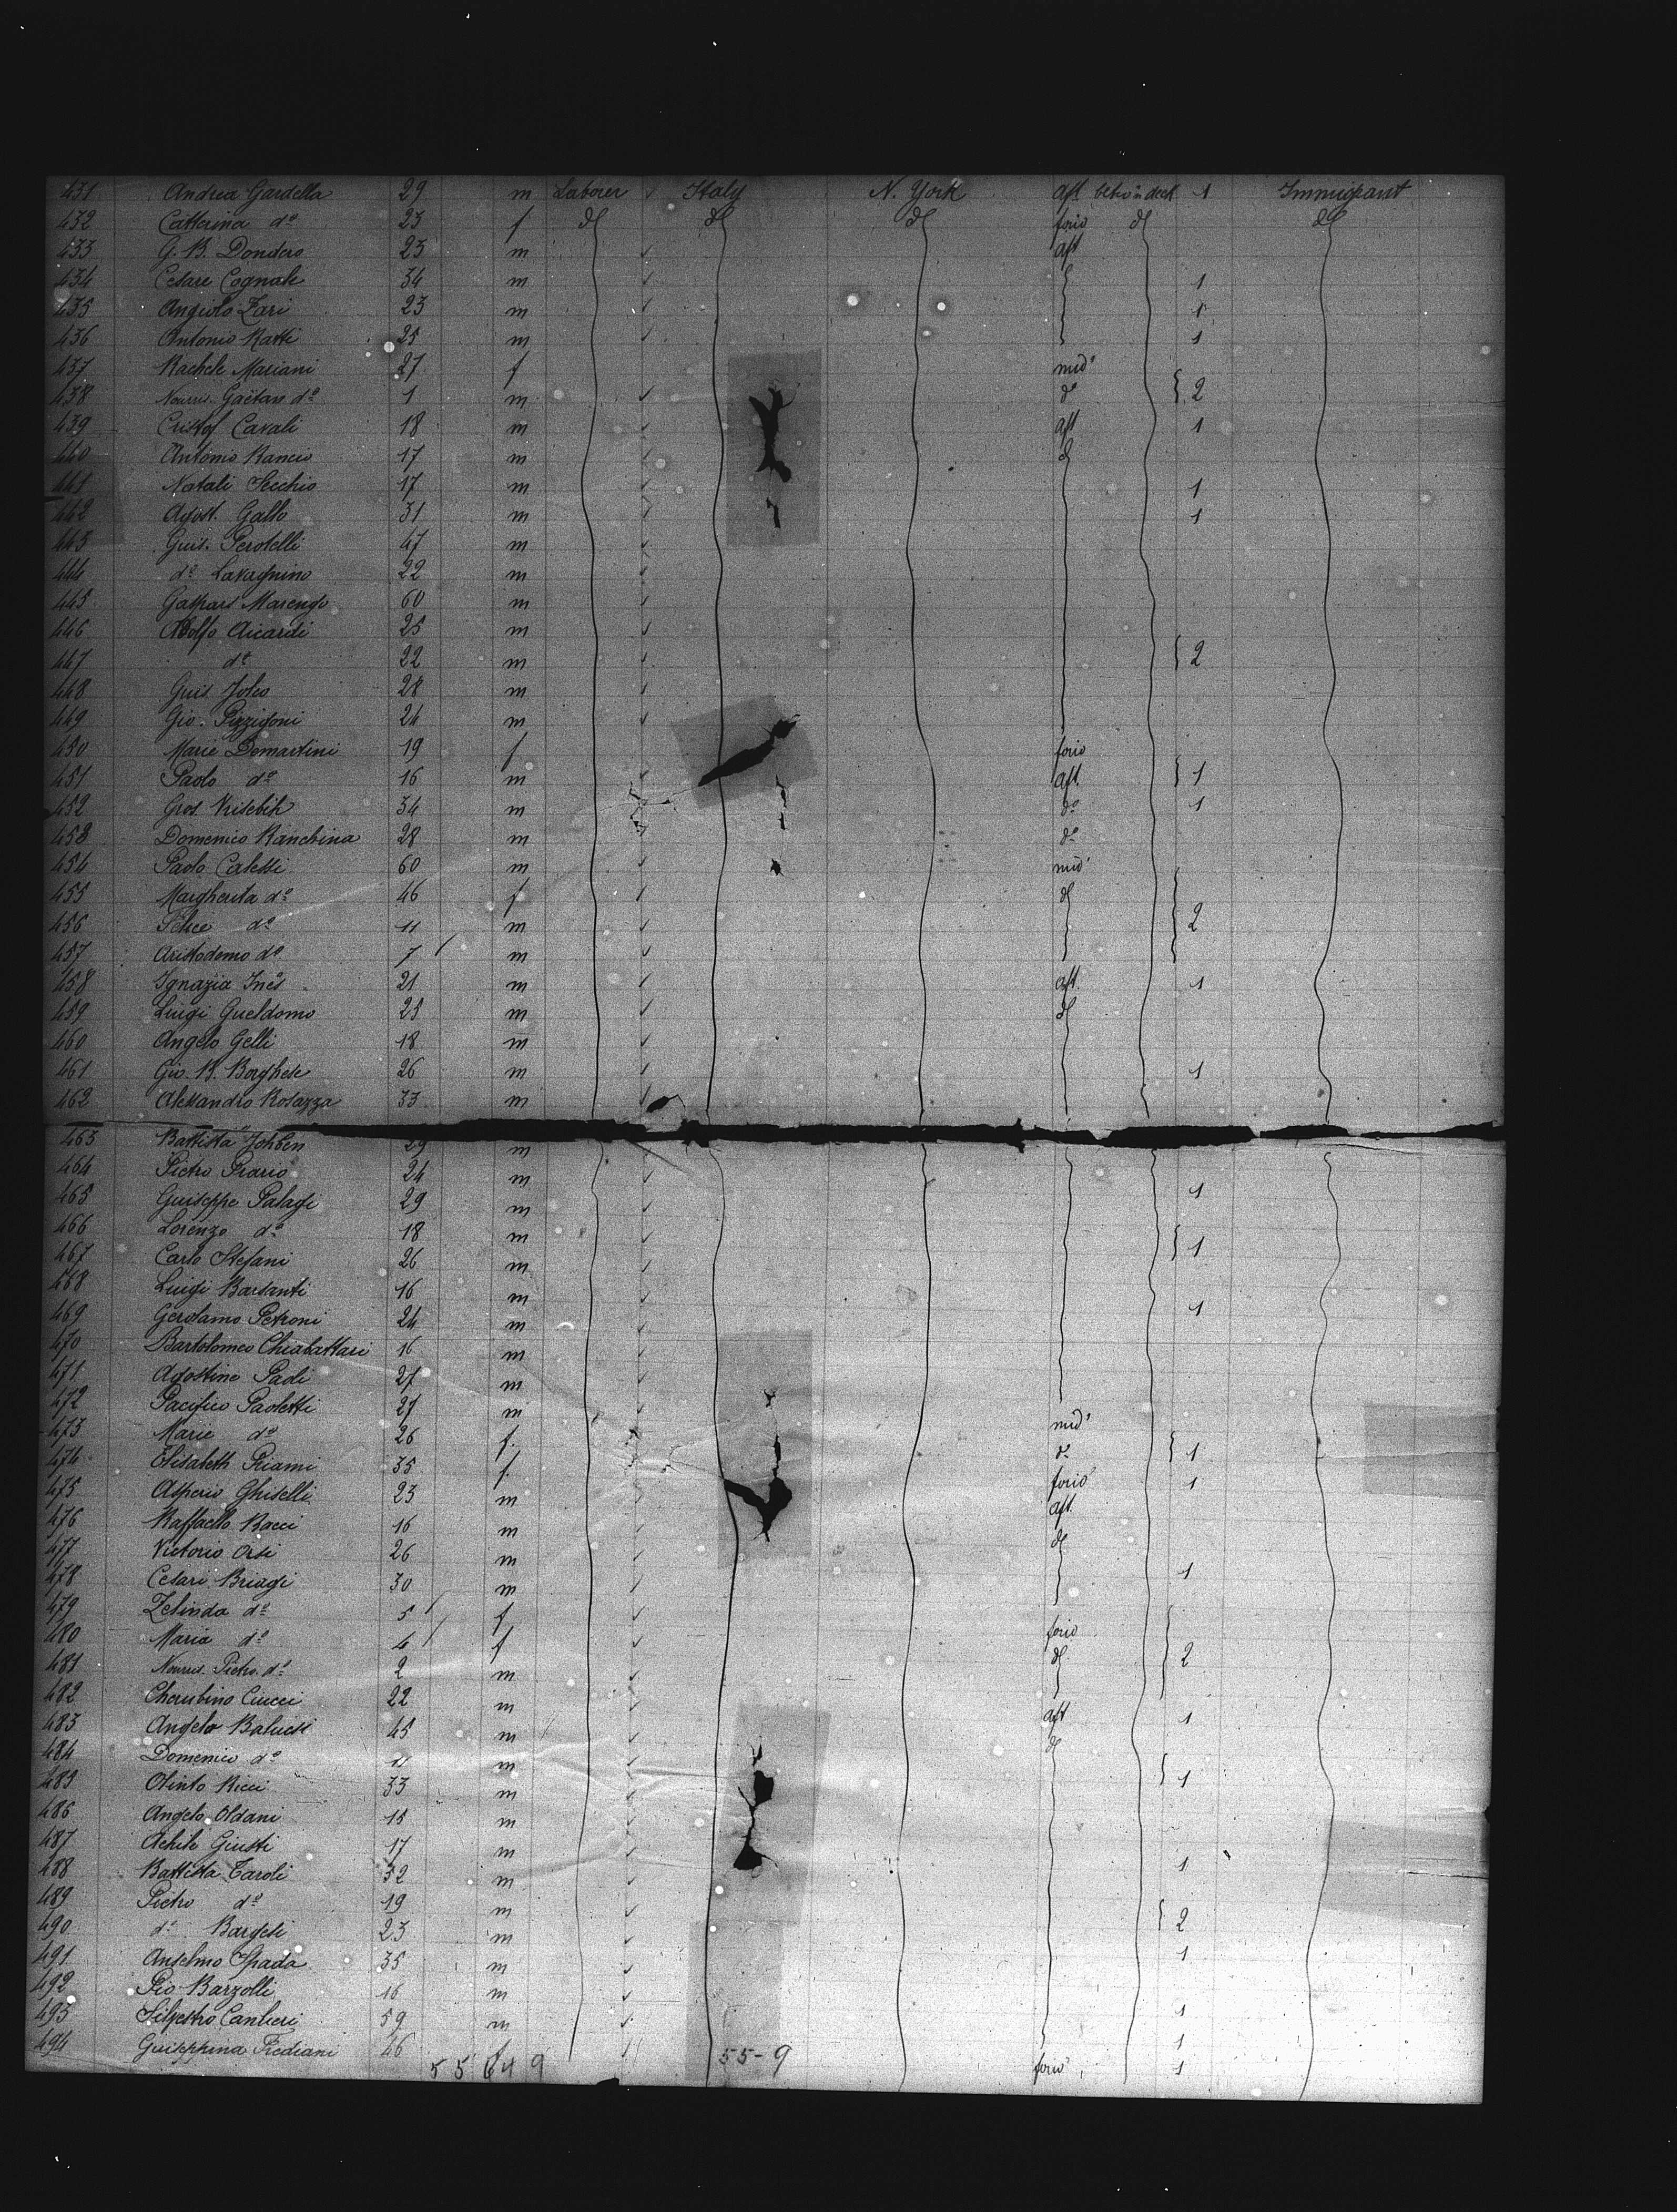 431 Andrea Gardella 29 m Laborer Italy N. York aft betw'n deck 1 Immigrant
432 Catterina do 23 f do do do forw do do
433 G. B. Dondero 23 m aft
434 Cesare Cognale 34 m 1
435 Angiolo Zari 23 m 1
436 Antonio Ratti 25 m 1
437 Rachele Mariani 27 f mid'
438 Nourris. Gaëtan do 1 m do 2
439 Cristof Cavali 18 m aft 1
440 Antonio Rancio 17 m do
441 Natali Secchio 17 m 1
442 Agost. Gallo 31 m 1
443 Guis. Perotelli 47 m
444 do Lavagnino 22 m
445 Gaspars Marengo 60 m
446 Adolfo Aicardi 25 m
447 do 22 m 2
448 Guis 28 m
449 Gio. Pizzigoni 24 m
450 Marie Demartini 19 f forw
451 Paolo do 16 m aft. 1
452 Gros 34 m do 1
453 Domenico Ranchina 28 m do
454 Paolo Calessi 60 m mid'
455 Margherita do 46 f do
456 Felice do 11 m 2
457 Aristodemo do 7 m
458 Ignazia Ines 21 m aft. 1
459 Luigi Gueldomo 23 m do
460 Angelo Gelli 18 m
461 Gio. B. Borghese 26 m 1
462 Alessandro Rosazza 33 m
463 Battista 29 m
464 Pietro Piario 24 m
465 Guiseppe Palagi 29 m 1
466 Lorenzo do 18 m
467 Carlo Stefani 26 m 1
468 Luigi Barsanti 16 m
469 Gerolamo Petroni 24 m 1
470 Bartolomeo Chiabattari 16 m
471 Agostino Paoli 27 m
472 Pacifico Paoletti 27 m
473 Marie do 26 f. mid'
474 Elisabeth Priami 35 f. do 1
475 Asperio Ghiselli 23 m forw 1
476 Raffaello Bacci 16 m aft.
477 Victorio Orsi 26 m do
478 Cesari Briagi 30 m 1
479 Zelinda do 5 f
480 Maria do 4 f forw
481 Nourris. Pietro do 2 m do 2
482 Cherubino Ciucci 22 m
483 Angelo Balucsi 45 m aft 1
484 Domenico do 11 m do
485 Olinto Ricci 33 m 1
486 Angelo Oldani 15 m
487 Achile Giusti 17 m
488 Battista Caroli 32 m 1
489 Pietro do 19 m
490 do Bargeli 23 m 2
491 Anselmo Spada 35 m 1
492 Pio Barzolli 16 m
493 Silvestro Cantieri 59 m 1
494 Guiseppina Frediani 46 f 1
55 64 9 55-9 forw 1